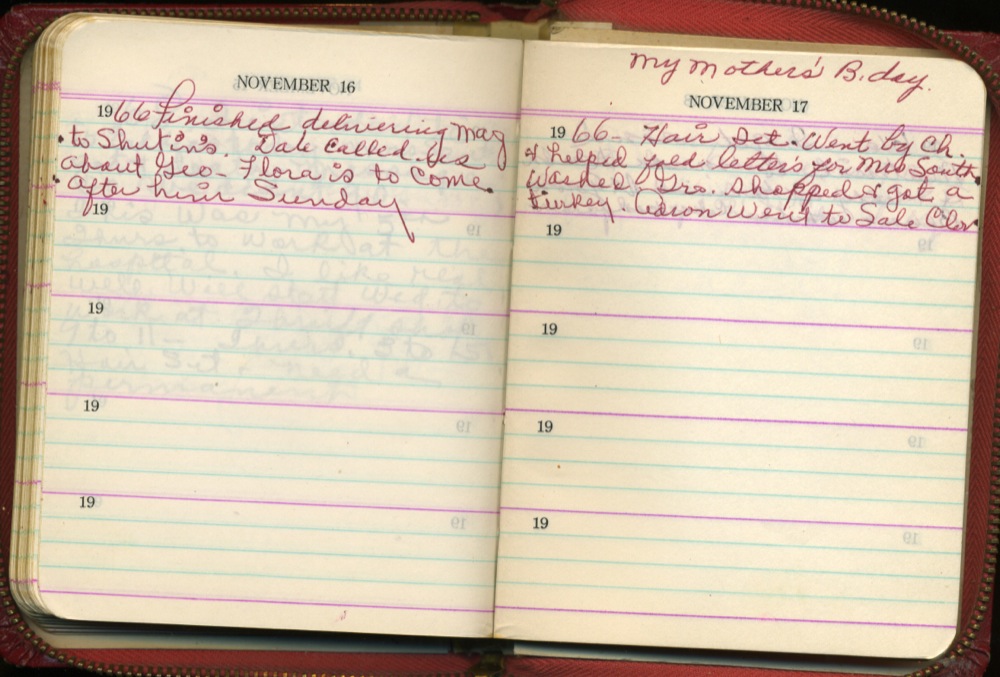 NOVEMBER 16
1966 Finished delivering Mag
to Shut in's. Dale called us
about Geo- Flora is to come
after him Sunday
19
19
19
19
My Mother's B.day.
NOVEMBER 17
1966- Hair Set. Went by Ch.
& helped fold letters for Mrs South.
Washed. Gro. shopped & got a
turkey. Aaron Went to Sale Clov
19
19
19
19